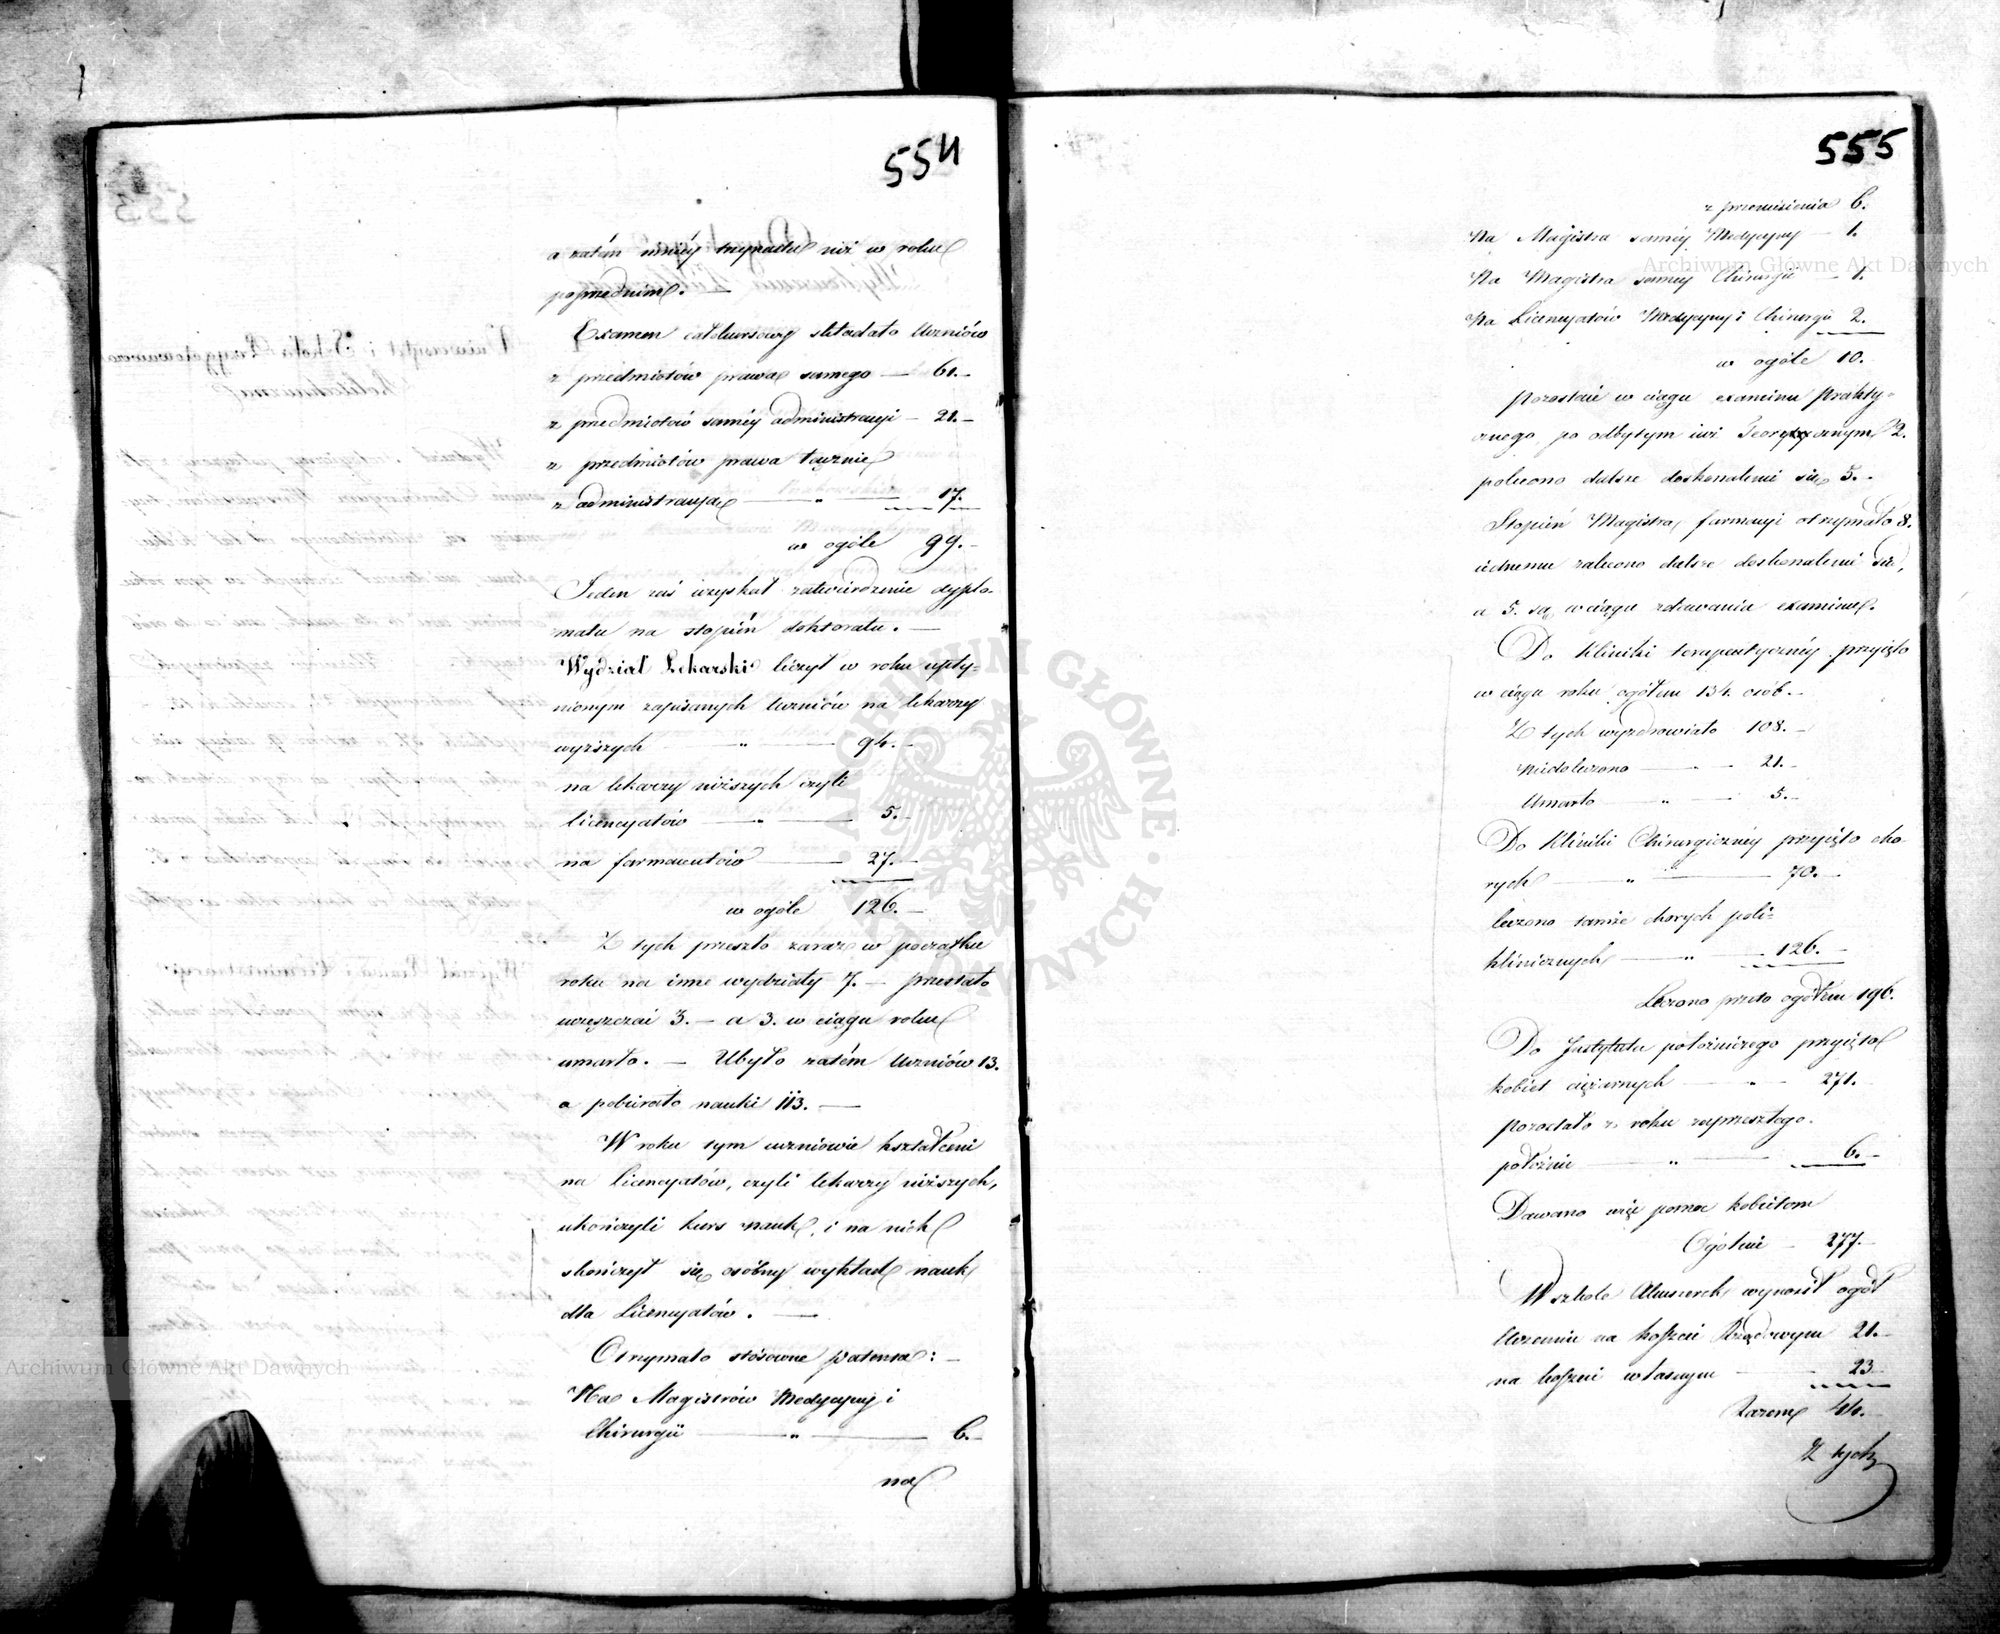 554
a zatém mniéy trzynastu niż w roku
poprzednim.
Examen całokursowy składało Uczniów
z przedmiotów prawa samego — 61.—
z przedmiotów saméy administracyi — 21.—
z przedmiotów prawa łącznie
z administracyą — " — 17.
w ogóle 99.—
Jeden zaś uzyskał zatwierdzenie dyplo-
matu na stopień doktoratu. —
Wydział Lekarski liczył w roku upły-
nionym zapisanych Uczniów na lekarzy
wyższych " — 94.—
na lekarzy niższych czyli
licencyatów — " — 5.—
na farmaceutów — 27.—
w ogóle 126.—
Z tych przeszło zaraz w początku
roku na inne wydziały 7. — przestało
uczęszczać 3. — a 3. w ciągu roku
umarło. — Ubyło zatém Uczniów 13.
a pobierało nauki 113. —
W roku tym uczniowie kształceni
na Licencyatów, czyli lekarzy niższych,
ukończyli kurs nauk, i na nich
skończył się osóbny wykład nauk
dla Licencyatów. —
Otrzymało stósowne patenta: —
Na Magistrów Medycyny i
Chirurgii — " — 6.—
na
555
z przeniesienia 6.
Na Magistra saméy Medycyny — 1.
Na Magistra saméy Chirurgii — 1.
Na Licencyatów Medycyny i Chirurgii 2.
w ogóle 10.
Pozostaie w ciągu examinu prakty-
cznego po odbytym iuż Teoretycznym 2.
polecono dalsze doskonalenie się 5.—
Stopień Magistra farmacyi otrzymało 8.
iednemu zalecono dalsze doskonalenie się,
a 5. są w ciągu zdawania examinu.
Do Kliniki terapeutycznéy przyięto
w ciągu roku ogółem 134. osób.—
Z tych wyzdrowiało 108.—
Niedoleczono — " — 21.—
Umarło — " — 5.—
Do Kliniki Chirurgicznéy przyięto cho-
rych — " — 70.—
leczono tamże chorych poli-
klinicznych — " — 126.—
Leczono przeto ogółem 196.
Do Instytutu położniczego przyięto
kobiet ciężarnych — " — 271.
pozostało z roku zaprzeszłego.
położnic — " — 6.—
Dawano więc pomoc kobietom
Ogółem — 277.—
W szkole Akuszerek wynosił ogół
Uczennic na koszcie Rządowym 21.—
na koszcie własnym — 23
Razem 44.—
Z tych
Archiwum Główne Akt Dawnych
Archiwum Główne Akt Dawnych
ARCHIWUM GŁÓWNE AKT DAWNYCH